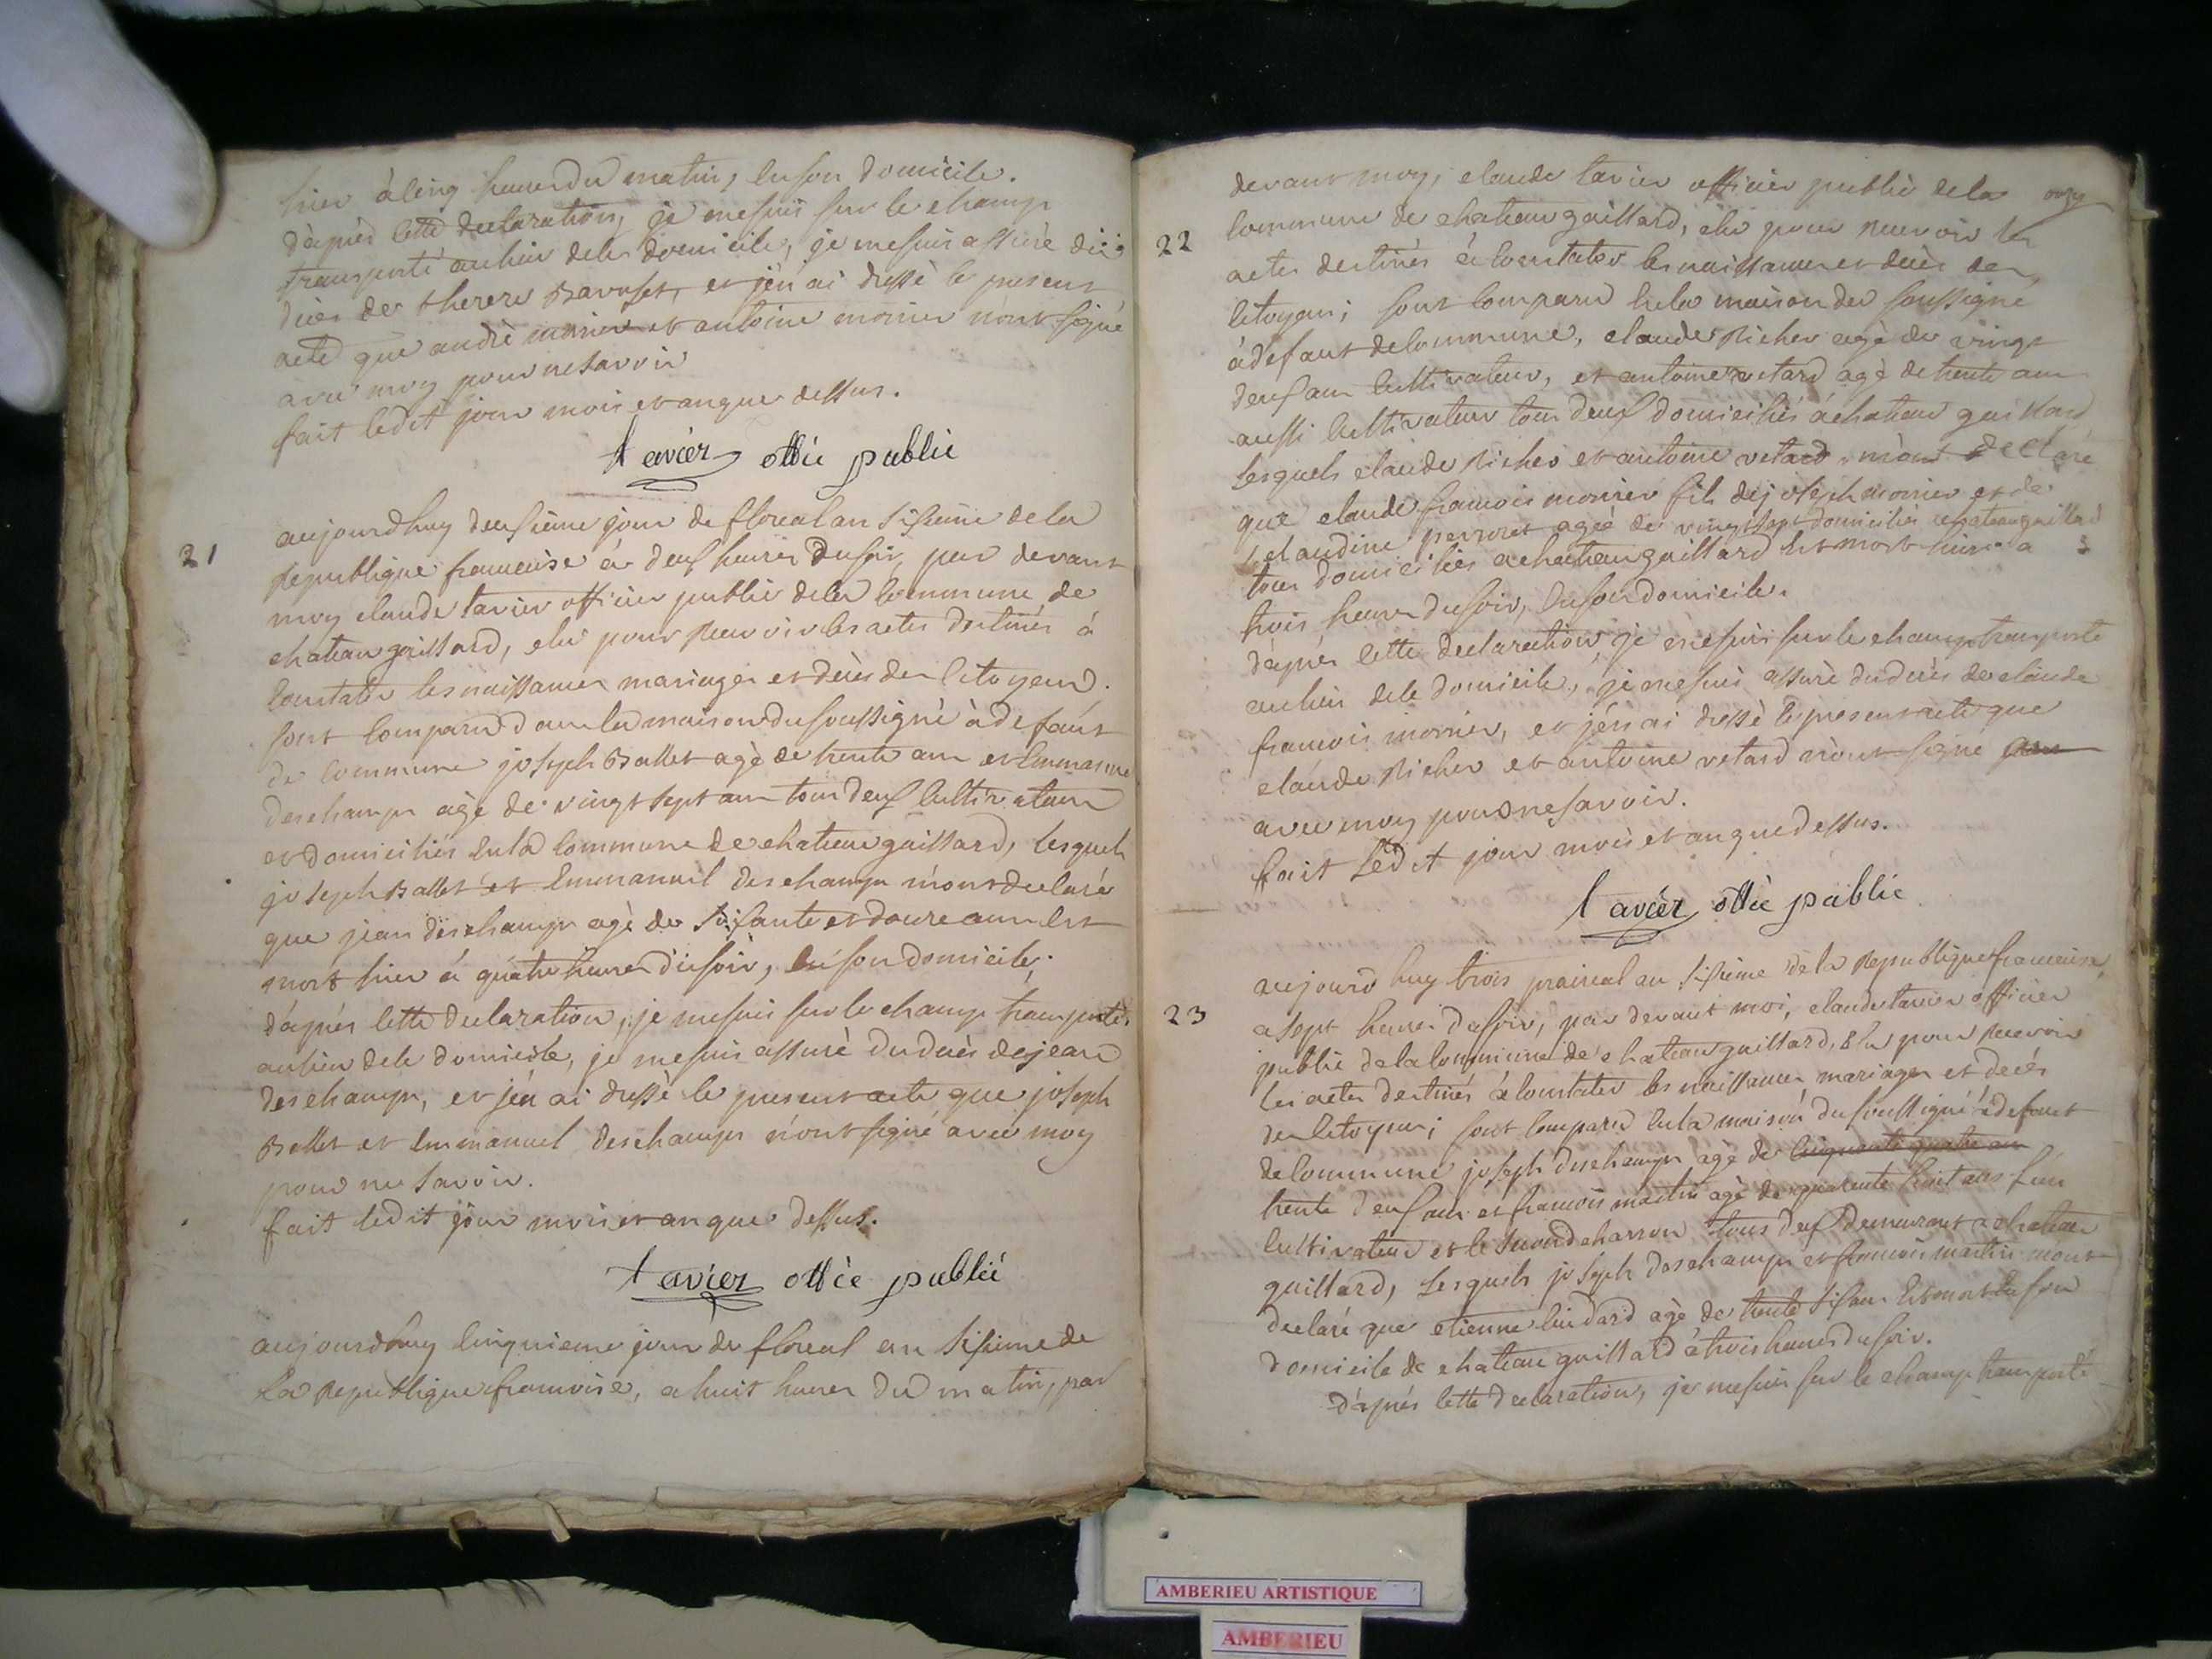 hier à cinq heures du matin, en son domicile.
d'après cette declaration, je me suis sur le champ
transporté au lieu de le domicile, je me suis assuré du
décès de therese Bavuset, et j'én ai dressé le present
acte que andrè monier et antoine monier n'ont signé
avec moy pour ne savoir
fait ledit jour mois et an que dessus.
tavier offie public
21
aujourdhuy deusieme jour de floreal an sisieme de la
Republique francaise à deus heures du soir, par devant
moy claude tavier officier public de la commune de
chateau gaillard, elu pour recevoir les actes destinés à
constater les naissances mariages et decès des citoyens.
sont comparus dans la maison du soussigné à defaut
de commune joseph Ballet agè de trente ans et Emmanuel
deschamps agè de vingt sept ans tous deus cultivateurs
et domiciliés en la commune de chateau gaillard, lesquels
joseph Ballet et Emmanuel deschamps m'ont declaré
que jean deschamps agè de soisante et douze ans est
mort hier à quatre heures du soir, en son domicile.
d'après cette declaration, je me suis sur le champ transporté
au lieu de le domicile, je me suis assuré du decès de jean
deschamps, et j'én ai dressè le present acte que joseph
Ballet et Emmanuel deschamps n'ont signé avec moy
pour ne savoir.
fait ledit jour mois et an que dessus.
tavier offie public
aujourdhuy cinquieme jour de floreal an sisieme de
la Republique francoise, a huit heures du matin, par
devant moy, claude tavier officier public de la
22
commune de chateau gaillard, elu pour recevoir les
actes destinés à constater les naissances et decès des
citoyens; sont comparus en la maison du soussigné
à defaut de commune, claude Richer agè de vingt
deus ans cultivateur, et antoine vetard agè de trente ans
aussi cultivateur tous deus domiciliés à chateau gaillard
lesquels claude Richer et antoine vetard m'ont declaré
que claude francois monier fils de joseph monier et de
claudine perroret agé de vingt sept domiciliés chateau gaillard
tous domiciliés a chateau gaillard est mort hier a
trois heures du soir, en son domicile.
d'après cette declaration, je me suis sur le champ transporté
au lieu de le domicile, je me suis assuré du decès de claude
francois monier, et j'én ai dressè le present acte que
claude Richer et antoine vetard n'ont signé
avec moy pour ne savoir.
fait ledit jour mois et an que dessus.
tavier offie public
aujourdhuy trois prairial an sisieme de la Republique francaise,
23
a sept heures du soir, par devant moi, claude tavier officier
public de la commune de chateau gaillard, Elu pour recevoir
les actes destinés à constater les naissances mariages et decés
des citoyens; sont comparus en la maison du soussigné à defaut
de commune joseph deschamps agè de cinquante quatre ans
trente deus ans et francois martin agè de quarante huit ans l'un
cultivateur et le second charron tous deus demeurant a chateau
gaillard, lesquels joseph deschamps et francois martin mont
declaré que etienne lindard agè de trente sis ans est mort en son
domicile de chateau gaillard à trois heures du soir.
d'après cette declaration, je me suis sur le champ transporté
AMBERIEU ARTISTIQUE
AMBERIEU